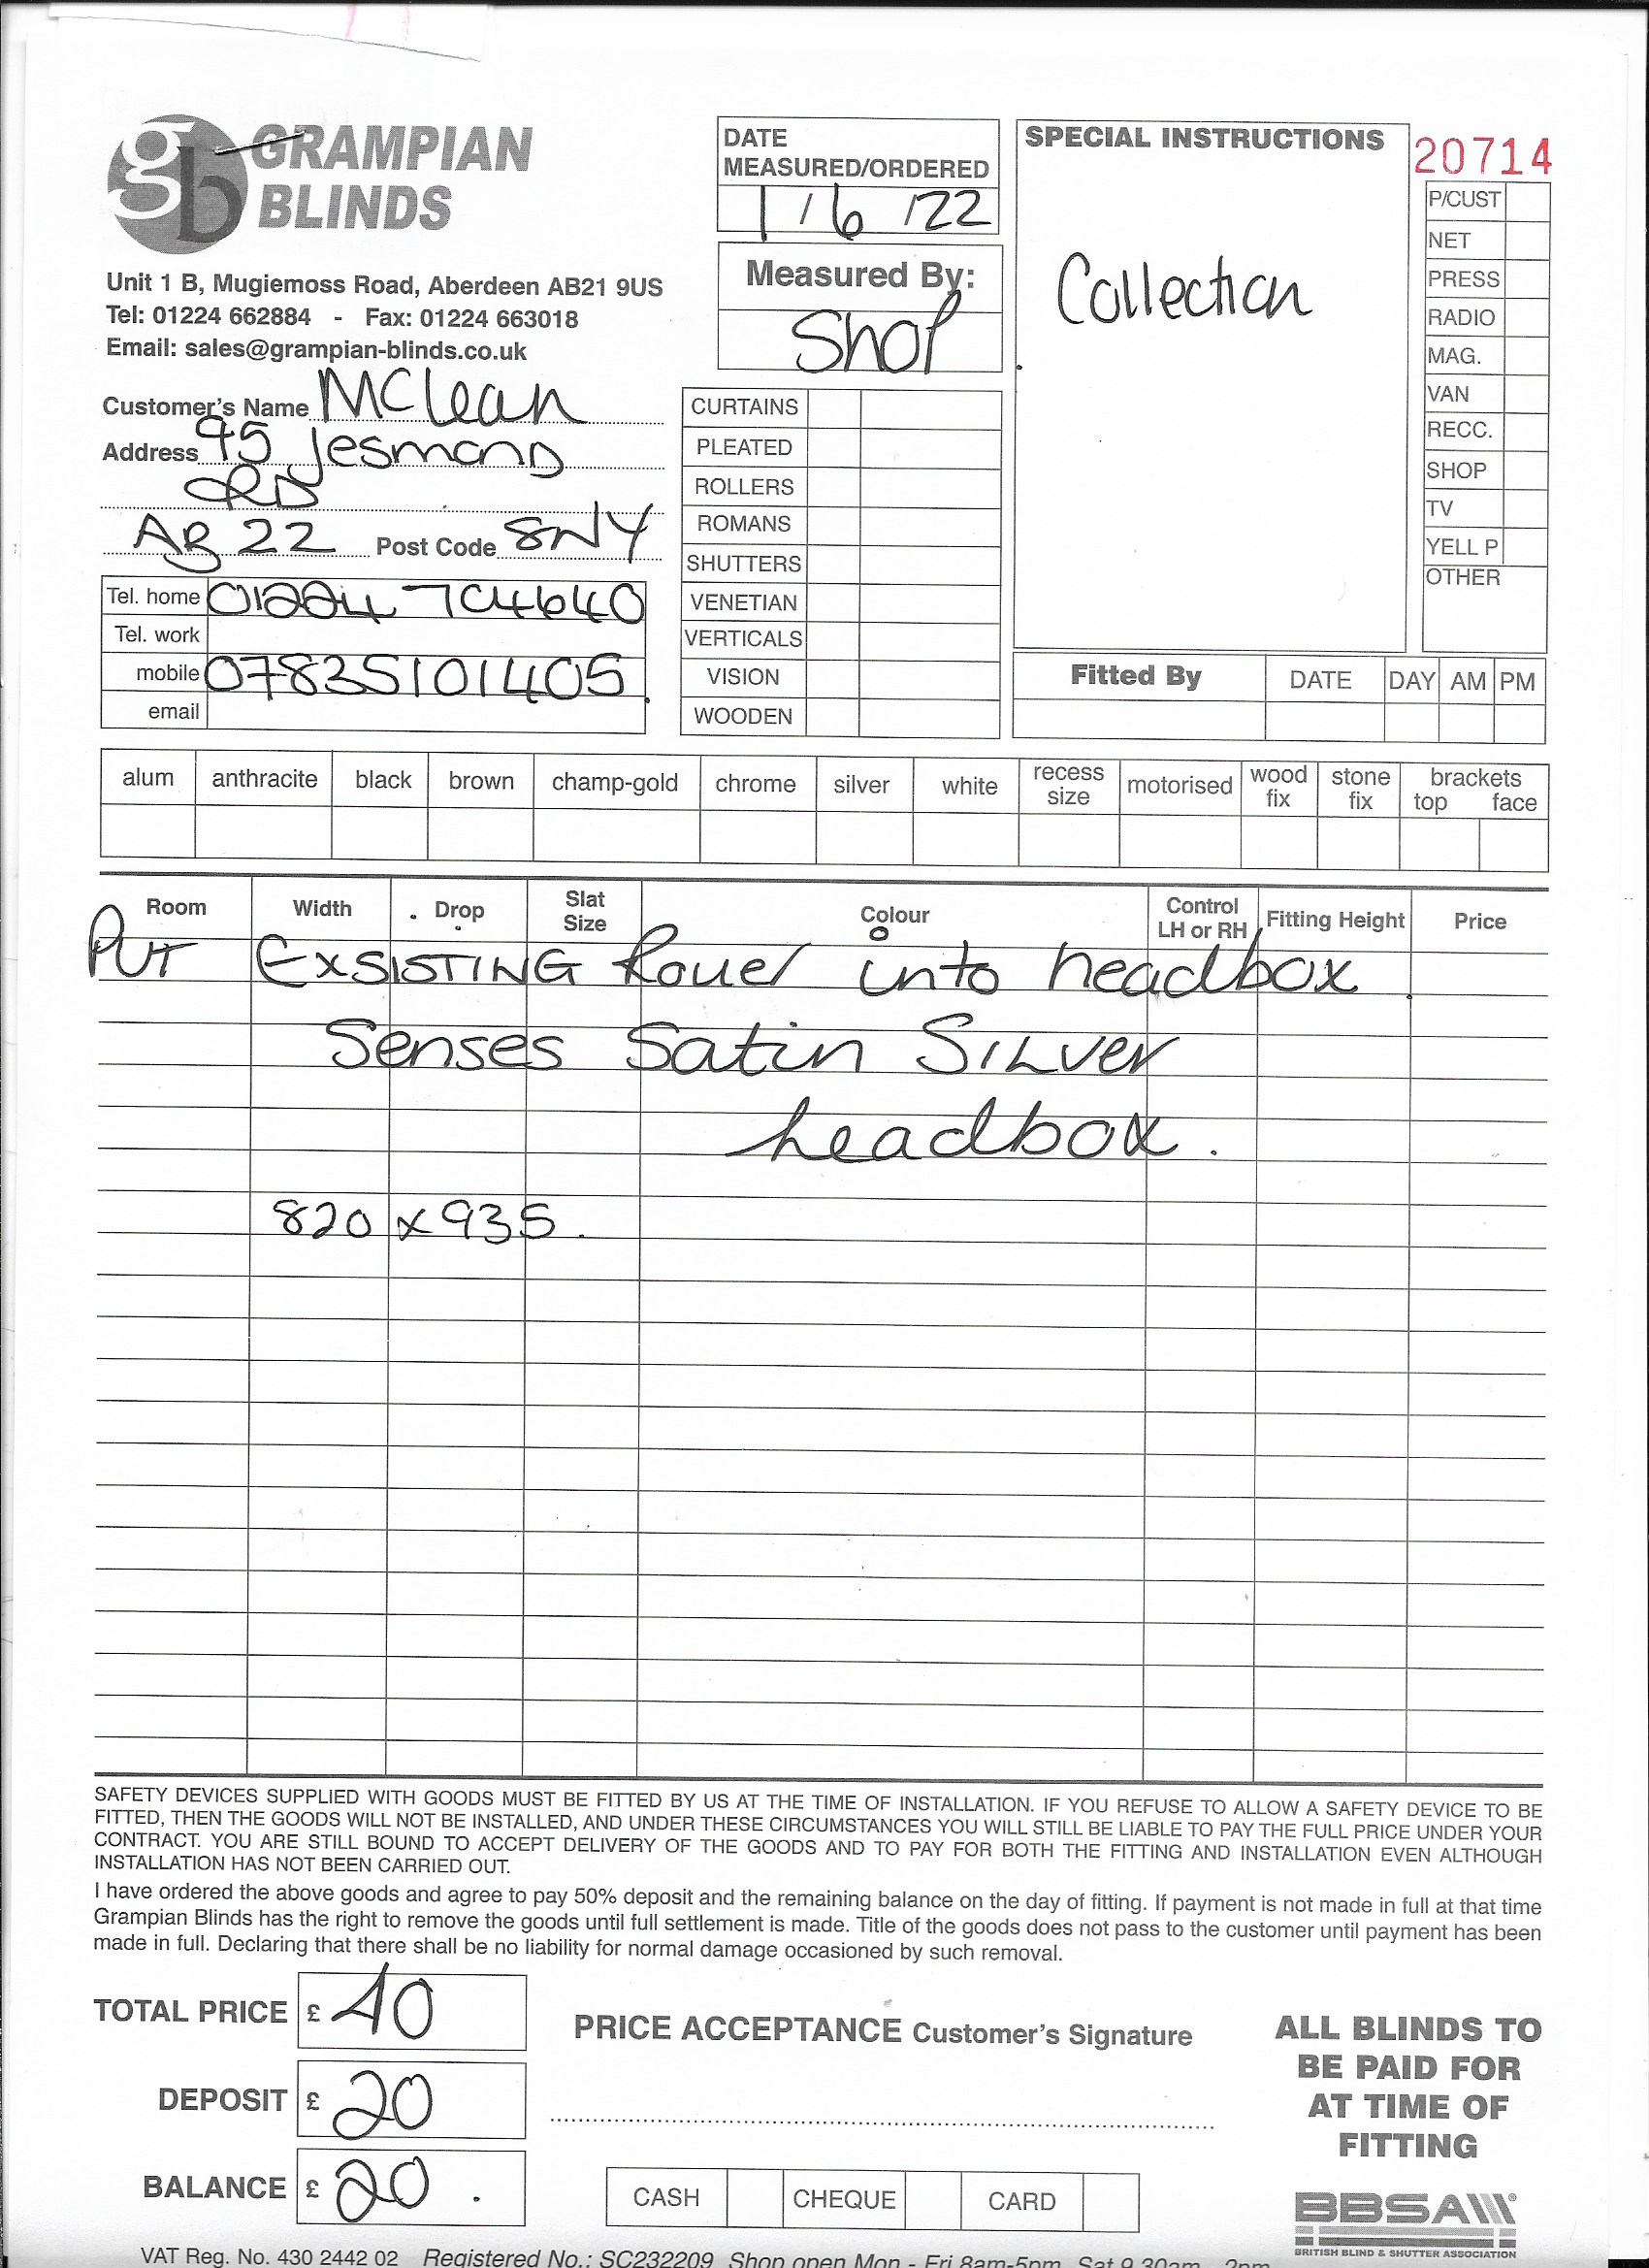 GRAMPIAN
BLINDS
Unit 1 B, Mugiemoss Road, Aberdeen AB21 9US
Tel: 01224 662884 - Fax: 01224 663018
Email: sales@grampian-blinds.co.uk
DATE
MEASURED/ORDERED
1 / 6 / 22
Measured By:
Shop
SPECIAL INSTRUCTIONS
Collection
20714
P/CUST
NET
PRESS
RADIO
MAG.
VAN
RECC.
SHOP
TV
YELL P
OTHER
Customer's Name McLean
Address 95 Jesmond
RD
AB 22 Post Code 8NY
Tel. home 01224 704640
Tel. work
mobile 07835101405
email
CURTAINS
PLEATED
ROLLERS
ROMANS
SHUTTERS
VENETIAN
VERTICALS
VISION
WOODEN
Fitted By DATE DAY AM PM
alum anthracite black brown champ-gold chrome silver white recess size motorised wood fix stone fix brackets top face
Room Width Drop Slat Size Colour Control LH or RH Fitting Height Price
PUT EXSISTING Roller into headbox
Senses Satin Silver
headbox.
820 x 935.
SAFETY DEVICES SUPPLIED WITH GOODS MUST BE FITTED BY US AT THE TIME OF INSTALLATION. IF YOU REFUSE TO ALLOW A SAFETY DEVICE TO BE
FITTED, THEN THE GOODS WILL NOT BE INSTALLED, AND UNDER THESE CIRCUMSTANCES YOU WILL STILL BE LIABLE TO PAY THE FULL PRICE UNDER YOUR
CONTRACT. YOU ARE STILL BOUND TO ACCEPT DELIVERY OF THE GOODS AND TO PAY FOR BOTH THE FITTING AND INSTALLATION EVEN ALTHOUGH
INSTALLATION HAS NOT BEEN CARRIED OUT.
I have ordered the above goods and agree to pay 50% deposit and the remaining balance on the day of fitting. If payment is not made in full at that time
Grampian Blinds has the right to remove the goods until full settlement is made. Title of the goods does not pass to the customer until payment has been
made in full. Declaring that there shall be no liability for normal damage occasioned by such removal.
TOTAL PRICE £ 40
DEPOSIT £ 20
BALANCE £ 20.
PRICE ACCEPTANCE Customer's Signature
CASH CHEQUE CARD
ALL BLINDS TO
BE PAID FOR
AT TIME OF
FITTING
BBSA
BRITISH BLIND & SHUTTER ASSOCIATION
VAT Reg. No. 430 2442 02 Registered No.: SC232209 Shop open Mon - Fri 8am-5pm Sat 9.30am - 2pm